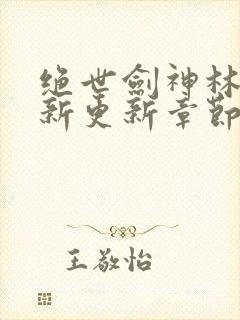 绝世劍神林
新更新章節
王敬怡